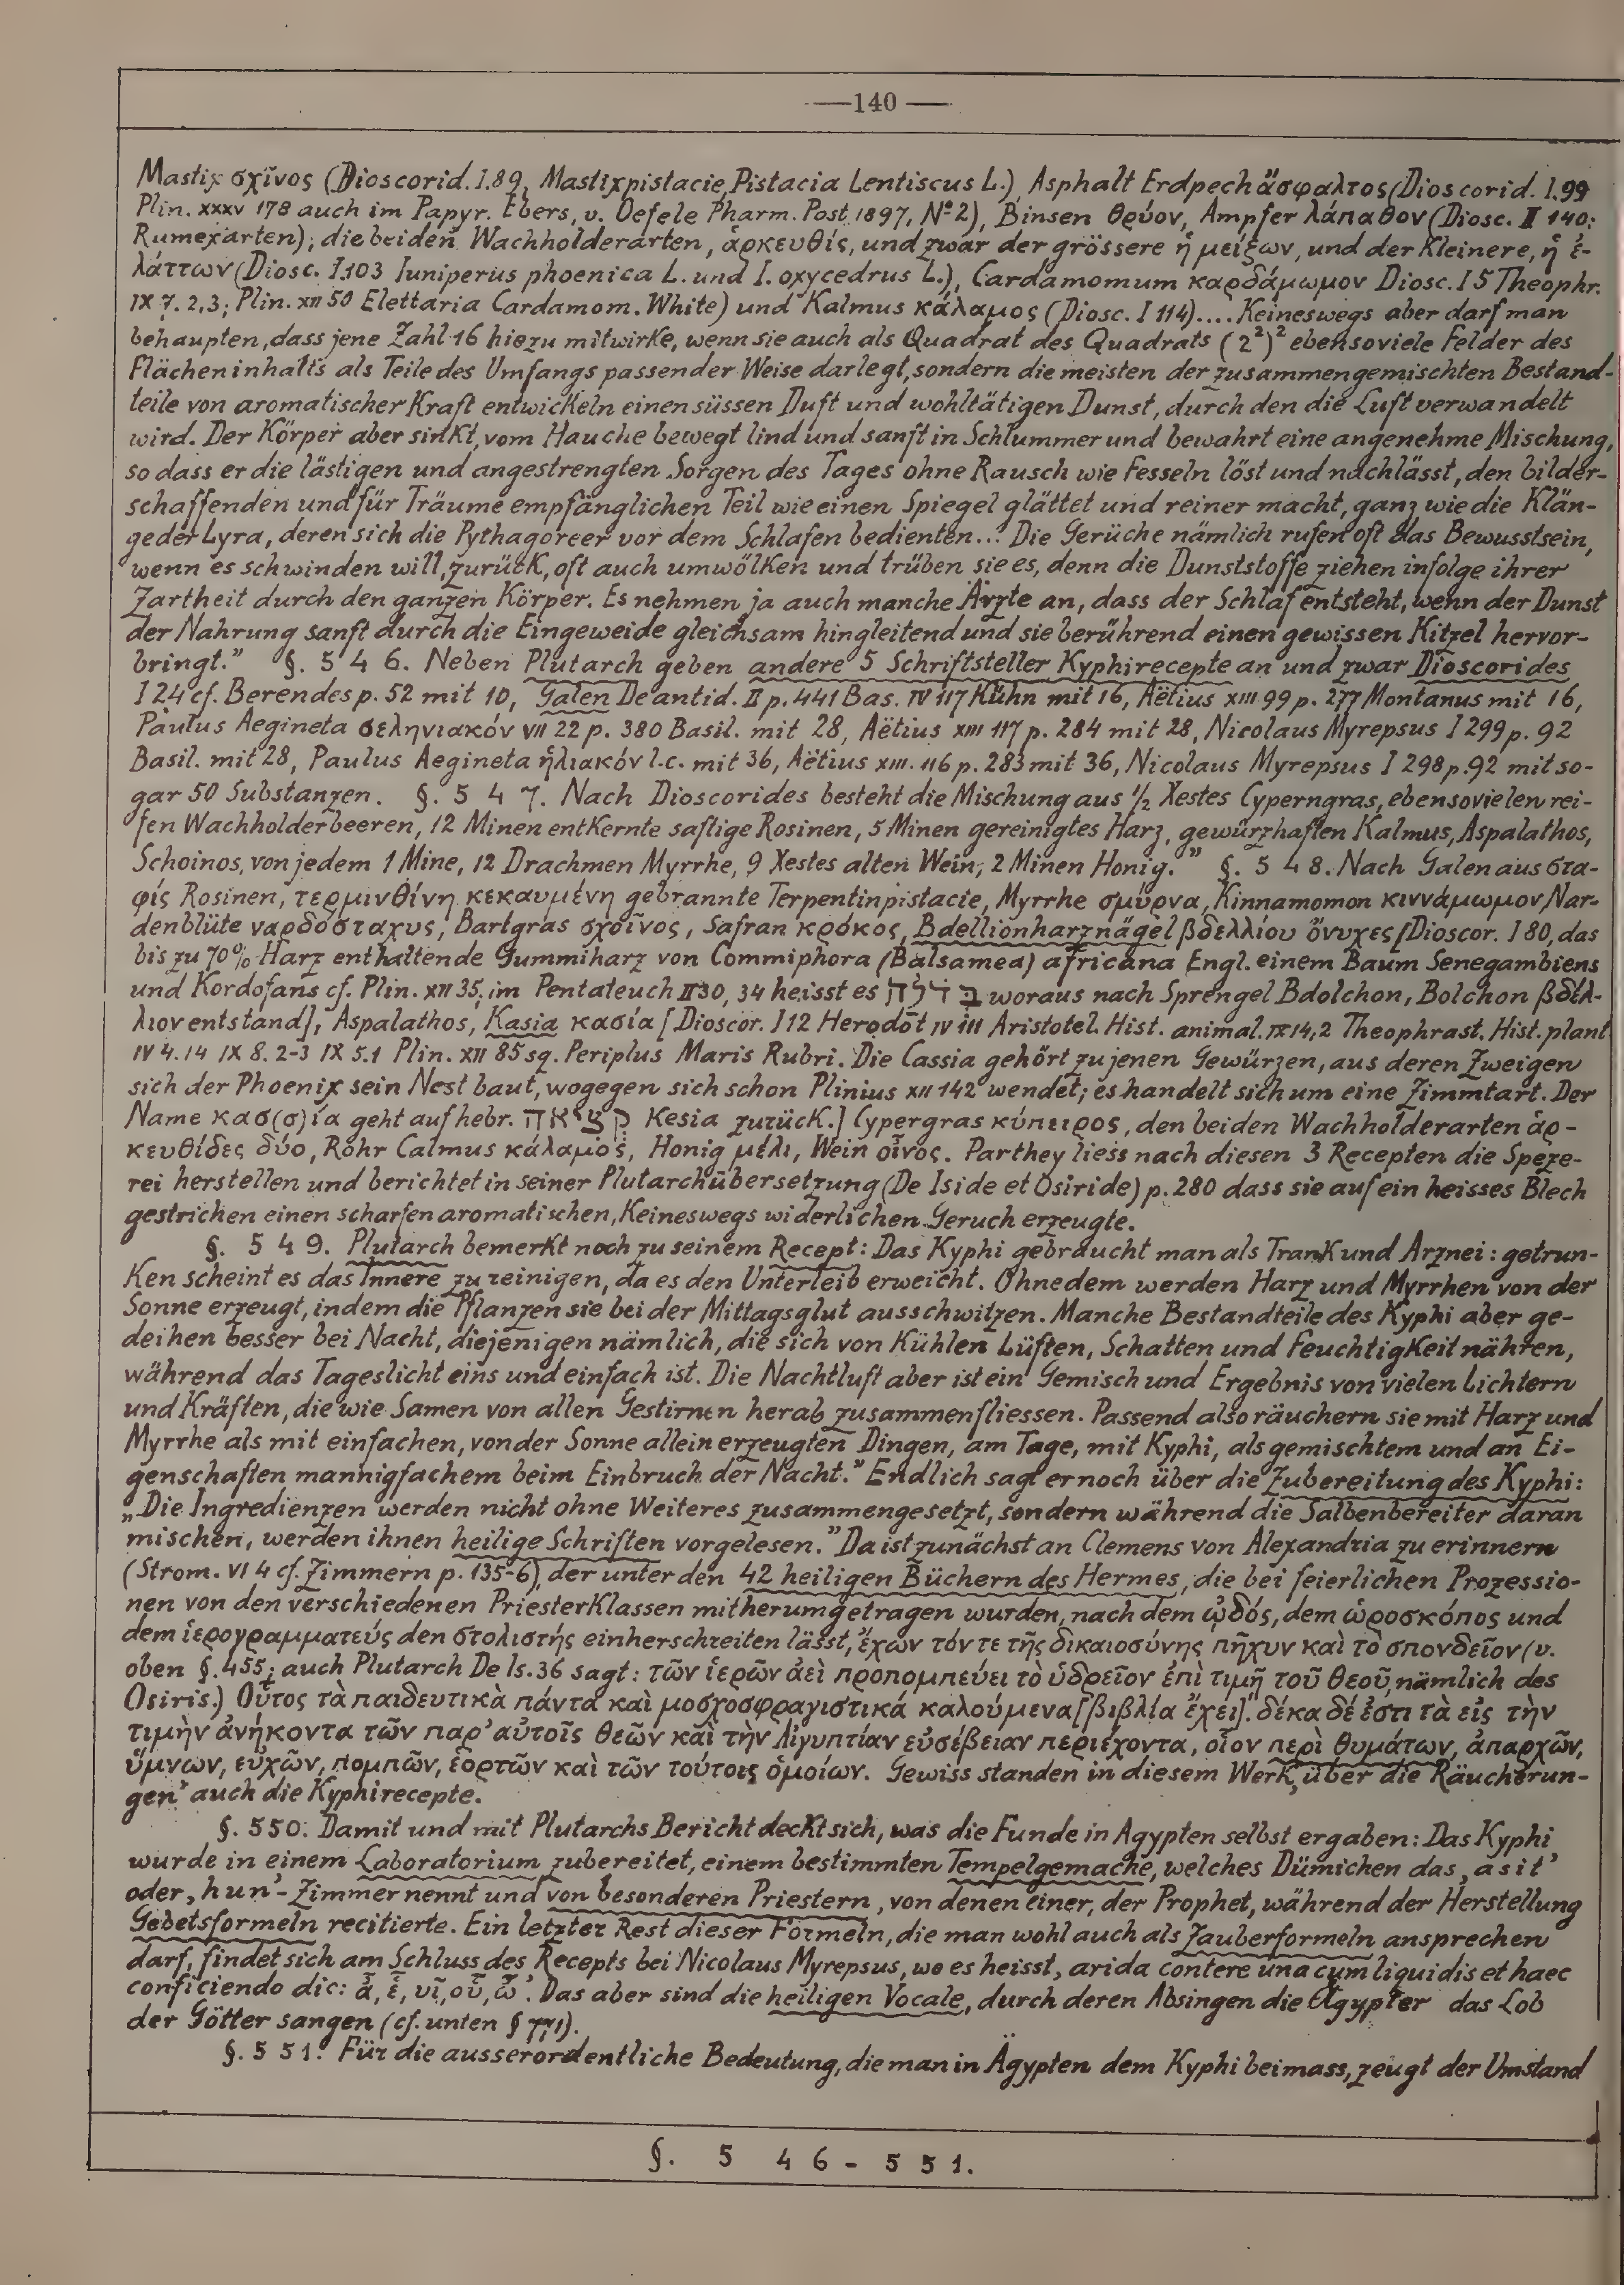 —140—
Mastix σχῖνος (Dioscorid. I.89, Mastixpistacie, Pistacia Lentiscus L.), Asphalt Erdpech ἄσφαλτος (Dioscorid. I.99
Plin. XXXV 178 auch im Papyr. Ebers, v. Oefele Pharm. Post. 1897, No 2), Binsen θρύον, Ampfer λάπαθον (Diosc. II 140:
Rumexarten); die beiden Wachholderarten, ἀρκευθίς, und zwar der grössere ἡ μείζων, und der Kleinere, ἡ ἐ-
λάττων (Diosc. I.103 Iuniperus phoenica L. und I. oxycedrus L.), Cardamomum καρδάμωμον Diosc. I 5 Theophr.
IX 7. 2,3; Plin. XII 50 Elettaria Cardamom. White) und Kalmus κάλαμος (Diosc. I 114).... Keineswegs aber darf man
behaupten, dass jene Zahl 16 hiezu mitwirke, wenn sie auch als Quadrat des Quadrats (2²)² ebensoviele Felder des
Flächeninhalts als Teile des Umfangs passender Weise darlegt, sondern die meisten der zusammengemischten Bestand-
teile von aromatischer Kraft entwickeln einen süssen Duft und wohltätigen Dunst, durch den die Luft verwandelt
wird. Der Körper aber sinkt, vom Hauche bewegt lind und sanft in Schlummer und bewahrt eine angenehme Mischung,
so dass er die lästigen und angestrengten Sorgen des Tages ohne Rausch wie Fesseln löst und nachlässt, den bilder-
schaffenden und für Träume empfänglichen Teil wie einen Spiegel glättet und reiner macht, ganz wie die Klän-
ge der Lyra, deren sich die Pythagoreer vor dem Schlafen bedienten... Die Gerüche nämlich rufen oft das Bewusstsein,
wenn es schwinden will, zurück, oft auch umwölken und trüben sie es, denn die Dunststoffe ziehen infolge ihrer
Zartheit durch den ganzen Körper. Es nehmen ja auch manche Ärzte an, dass der Schlaf entsteht, wenn der Dunst
der Nahrung sanft durch die Eingeweide gleichsam hingleitend und sie berührend einen gewissen Kitzel hervor-
bringt." §. 546. Neben Plutarch geben andere 5 Schriftsteller Kyphirecepte an und zwar Dioscorides
I 24 cf. Berendes p. 52 mit 10, Galen De antid. II p. 441 Bas. IV 117 Kühn mit 16, Aëtius XIII 99 p. 277 Montanus mit 16,
Paulus Aegineta σεληνιακόν VII 22 p. 380 Basil. mit 28, Aëtius XIII 117 p. 284 mit 28, Nicolaus Myrepsus I 299 p. 92
Basil. mit 28, Paulus Aegineta ἡλιακόν l.c. mit 36, Aëtius XIII. 116 p. 283 mit 36, Nicolaus Myrepsus I 298 p. 92 mit so-
gar 50 Substanzen. §. 547. Nach Dioscorides besteht die Mischung aus ½ Xestes Cyperngras, ebensovielen rei-
fen Wachholderbeeren, 12 Minen entkernte saftige Rosinen, 5 Minen gereinigtes Harz, gewürzhaften Kalmus, Aspalathos,
Schoinos, von jedem 1 Mine, 12 Drachmen Myrrhe, 9 Xestes alten Wein, 2 Minen Honig." §. 548. Nach Galen aus στα-
φίς Rosinen, τερμινθίνη κεκαυμένη gebrannte Terpentinpistacie, Myrrhe σμύρνα, Kinnamomon κιννάμωμον, Nar-
denblüte ναρδόσταχυς, Bartgras σχοῖνος, Safran κρόκος, Bdellionharznägel βδελλίου ὄνυχες [Dioscor. I 80, das
bis zu 70% Harz enthaltende Gummiharz von Commiphora (Balsamea) africana Engl. einem Baum Senegambiens
und Kordofans cf. Plin. XII 35, im Pentateuch II 30, 34 heisst es בְּדֹלַח woraus nach Sprengel Bdolchon, Bolchon βδέλ-
λιον entstand], Aspalathos, Kasia κασία [Dioscor. I 12 Herodot IV III Aristotel. Hist. animal. IX 14,2 Theophrast. Hist. plant
IV 4. 14 IX 8. 2-3 IX 5.1 Plin. XII 85 sq. Periplus Maris Rubri. Die Cassia gehört zu jenen Gewürzen, aus deren Zweigen
sich der Phoenix sein Nest baut, wogegen sich schon Plinius XII 142 wendet; es handelt sich um eine Zimmtart. Der
Name κασ(σ)ία geht auf hebr. Kesia zurück.] Cypergras κύπειρος, den beiden Wachholderarten ἀρ-
κευθίδες δύο, Rohr Calmus κάλαμος, Honig μέλι, Wein οἶνος. Parthey liess nach diesen 3 Recepten die Speze-
rei herstellen und berichtet in seiner Plutarchübersetzung (De Iside et Osiride) p. 280 dass sie auf ein heisses Blech
gestrichen einen scharfen aromatischen, Keineswegs widerlichen Geruch erzeugte.
§. 549. Plutarch bemerkt noch zu seinem Recept: Das Kyphi gebraucht man als Trank und Arznei: getrun-
Ken scheint es das Innere zu reinigen, da es den Unterleib erweicht. Ohnedem werden Harz und Myrrhen von der
Sonne erzeugt, indem die Pflanzen sie bei der Mittagsglut ausschwitzen. Manche Bestandteile des Kyphi aber ge-
deihen besser bei Nacht, diejenigen nämlich, die sich von Kühlen Lüften, Schatten und Feuchtigkeit nähren,
während das Tageslicht eins und einfach ist. Die Nachtluft aber ist ein Gemisch und Ergebnis von vielen Lichtern
und Kräften, die wie Samen von allen Gestirnen herab zusammenfliessen. Passend also räuchern sie mit Harz und
Myrrhe als mit einfachen, von der Sonne allein erzeugten Dingen, am Tage, mit Kyphi, als gemischtem und an Ei-
genschaften mannigfachem beim Einbruch der Nacht." Endlich sagt er noch über die Zubereitung des Kyphi:
„Die Ingredienzen werden nicht ohne Weiteres zusammengesetzt, sondern während die Salbenbereiter daran
mischen, werden ihnen heilige Schriften vorgelesen." Da ist zunächst an Clemens von Alexandria zu erinnern
(Strom. VI 4 cf. Zimmern p. 135-6), der unter den 42 heiligen Büchern des Hermes, die bei feierlichen Prozessio-
nen von den verschiedenen Priesterklassen mitherumgetragen wurden, nach dem ᾠδός, dem ὡροσκόπος und
dem ἱερογραμματεύς den στολιστής einherschreiten lässt, ἔχων τόν τε τῆς δικαιοσύνης πῆχυν καὶ τὸ σπονδεῖον (v.
oben §. 455; auch Plutarch De Is. 36 sagt: τῶν ἱερῶν ἀεὶ προπομπεύει τὸ ὑδρεῖον ἐπὶ τιμῇ τοῦ θεοῦ, nämlich des
Osiris.) Οὗτος τὰ παιδευτικὰ πάντα καὶ μοσχοσφραγιστικά καλούμενα [βιβλία ἔχει]. δέκα δέ ἐστι τὰ εἰς τὴν
τιμὴν ἀνήκοντα τῶν παρ' αὐτοῖς θεῶν καὶ τὴν Αἰγυπτίαν εὐσέβειαν περιέχοντα, οἷον περὶ θυμάτων, ἀπαρχῶν,
ὕμνων, εὐχῶν, πομπῶν, ἑορτῶν καὶ τῶν τούτοις ὁμοίων. Gewiss standen in diesem Werk ‚über die Räucherun-
gen' auch die Kyphirecepte.
§. 550. Damit und mit Plutarchs Bericht deckt sich, was die Funde in Ägypten selbst ergaben: Das Kyphi
wurde in einem Laboratorium zubereitet, einem bestimmten Tempelgemache, welches Dümichen das ‚asit'
oder ‚hun'-Zimmer nennt und von besonderen Priestern, von denen einer, der Prophet, während der Herstellung
Gebetsformeln recitierte. Ein letzter Rest dieser Formeln, die man wohl auch als Zauberformeln ansprechen
darf, findet sich am Schluss des Recepts bei Nicolaus Myrepsus, wo es heisst ‚arida contere una cum liquidis et haec
conficiendo dic: ἆ, ἐ, υῖ, οὖ, ὦ'. Das aber sind die heiligen Vocale, durch deren Absingen die Ägypter das Lob
der Götter sangen (cf. unten § 771).
§. 551. Für die ausserordentliche Bedeutung, die man in Ägypten dem Kyphi beimass, zeugt der Umstand
§. 546-551.